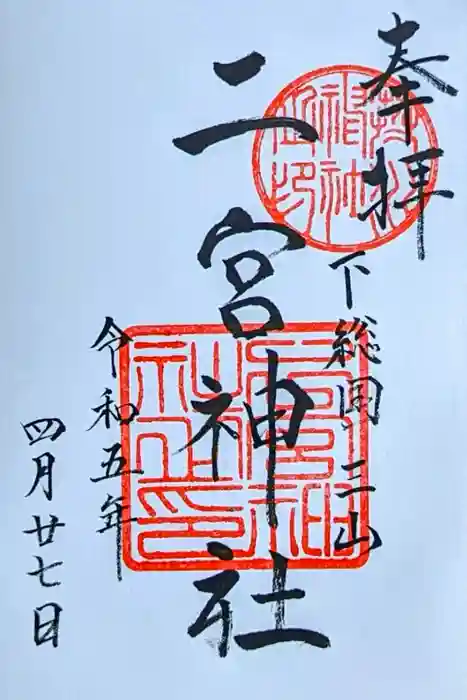 奉拝
下総国三山
二宮神社
令和五年
四月廿七日